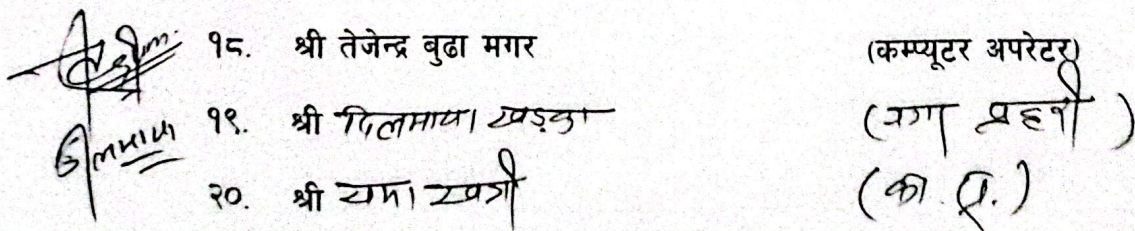 १८. श्री तेजेन्द्र बुढा मगर (कम्प्यूटर अपरेटर)
१९. श्री दिलमाया खड्का (नगर प्रहरी)
२०. श्री यमा खत्री (का. स.)
दिलमाया